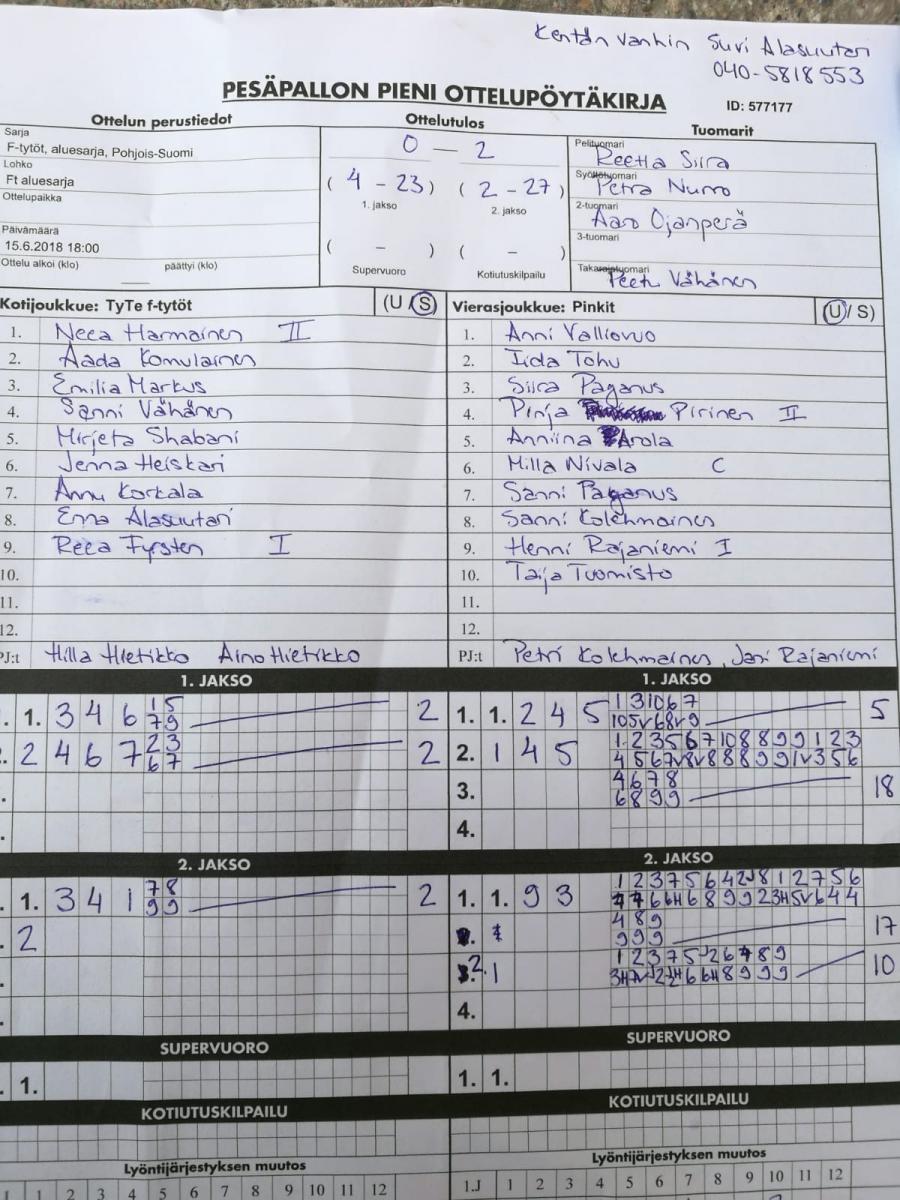 Kentän vanhin Suvi Alasuutari
040-5818553
PESÄPALLON PIENI OTTELUPÖYTÄKIRJA
ID: 577177
Ottelun perustiedot
Sarja
F-tytöt, aluesarja, Pohjois-Suomi
Lohko
Ft aluesarja
Ottelupaikka
Päivämäärä
15.6.2018 18:00
Ottelu alkoi (klo) päättyi (klo)
Ottelutulos
0 – 2
( 4 - 23 ) ( 2 - 27 )
1. jakso 2. jakso
( – ) ( – )
Supervuoro Kotiutuskilpailu
Tuomarit
Pelituomari
Reetta Siira
Syöttötuomari
Petra Nurro
2-tuomari
Aaro Ojanperä
3-tuomari
Takarajatuomari
Peetu Vähänen
Kotijoukkue: TyTe f-tytöt (U / S)
1. Neea Harmainen II
2. Aada Komulainen
3. Emilia Markus
4. Sanni Vähänen
5. Mirjeta Shabani
6. Jenna Heiskari
7. Annu Korkala
8. Enna Alasuutari
9. Reea Fyrsten I
10.
11.
12.
PJ:t Hilla Hietikko Aino Hietikko
Vierasjoukkue: Pinkit (U / S)
1. Anni Valliovuo
2. Iida Tohu
3. Siira Paganus
4. Pinja Pirinen II
5. Anniina Arola
6. Milla Nivala C
7. Sanni Paganus
8. Sanni Kolehmainen
9. Henni Rajaniemi I
10. Taija Tuomisto
11.
12.
PJ:t Petri Kolehmainen, Jari Rajaniemi
1. JAKSO
1. 3 4 6 1 5 2
7 9
2 4 6 7 2 3 2
6 7
2. JAKSO
1. 3 4 1 7 8 2
9 9
2
SUPERVUORO
1.
KOTIUTUSKILPAILU
Lyöntijärjestyksen muutos
1 2 3 4 5 6 7 8 9 10 11 12
1. JAKSO
1. 1. 2 4 5 1 3 10 6 7 5
10 5v 6 8v 9
2. 1 4 5 1 2 3 5 6 7 10 8 8 9 9 1 2 3
4 5 6 7v 8v 8 8 8 9 9 1v 3 5 6
3. 4 6 7 8 18
6 8 9 9
4.
2. JAKSO
1. 1. 9 3
4 8 9 17
9 9 9
2. 1 10
4.
SUPERVUORO
1. 1.
KOTIUTUSKILPAILU
Lyöntijärjestyksen muutos
1.J 1 2 3 4 5 6 7 8 9 10 11 12